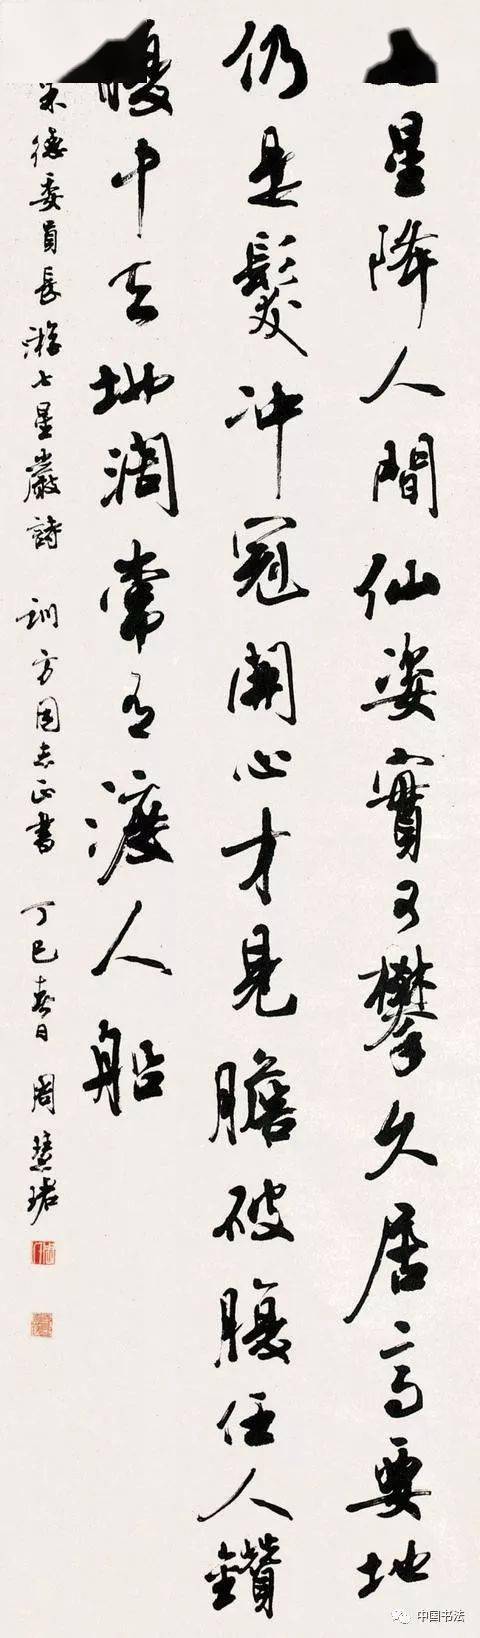 星降人間仙姿實可攀久居高要地
仍是髮冲冠開心才見膽破腹任人鑽
腹中天地濶常有渡人船
朱德委員長游七星巖詩 訓方同志正書 丁巳春日 周慧珺
中国书法